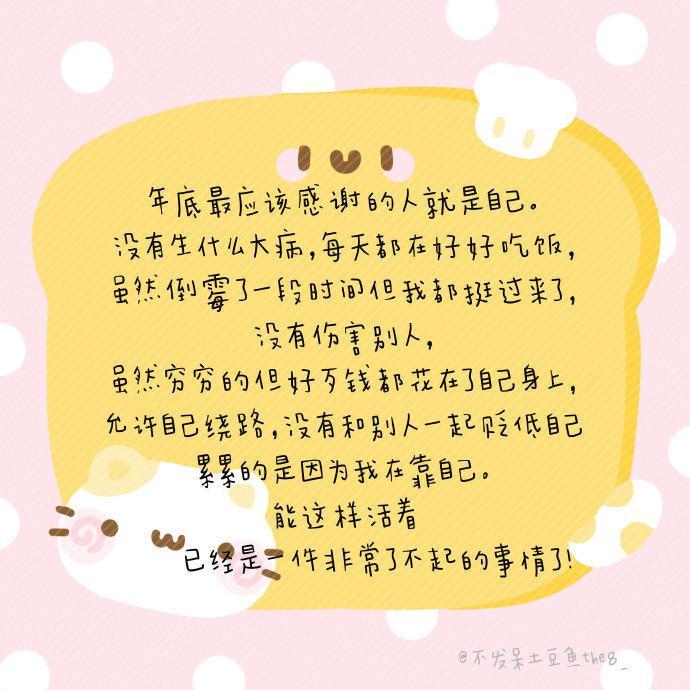 年底最应该感谢的人就是自己。
没有生什么大病,每天都在好好吃饭,
虽然倒霉了一段时间但我都挺过来了,
没有伤害别人,
虽然穷穷的但好歹钱都花在了自己身上,
允许自己绕路,没有和别人一起贬低自己
累累的是因为我在靠自己。
能这样活着
已经是一件非常了不起的事情了!
@不发呆土豆鱼the8_